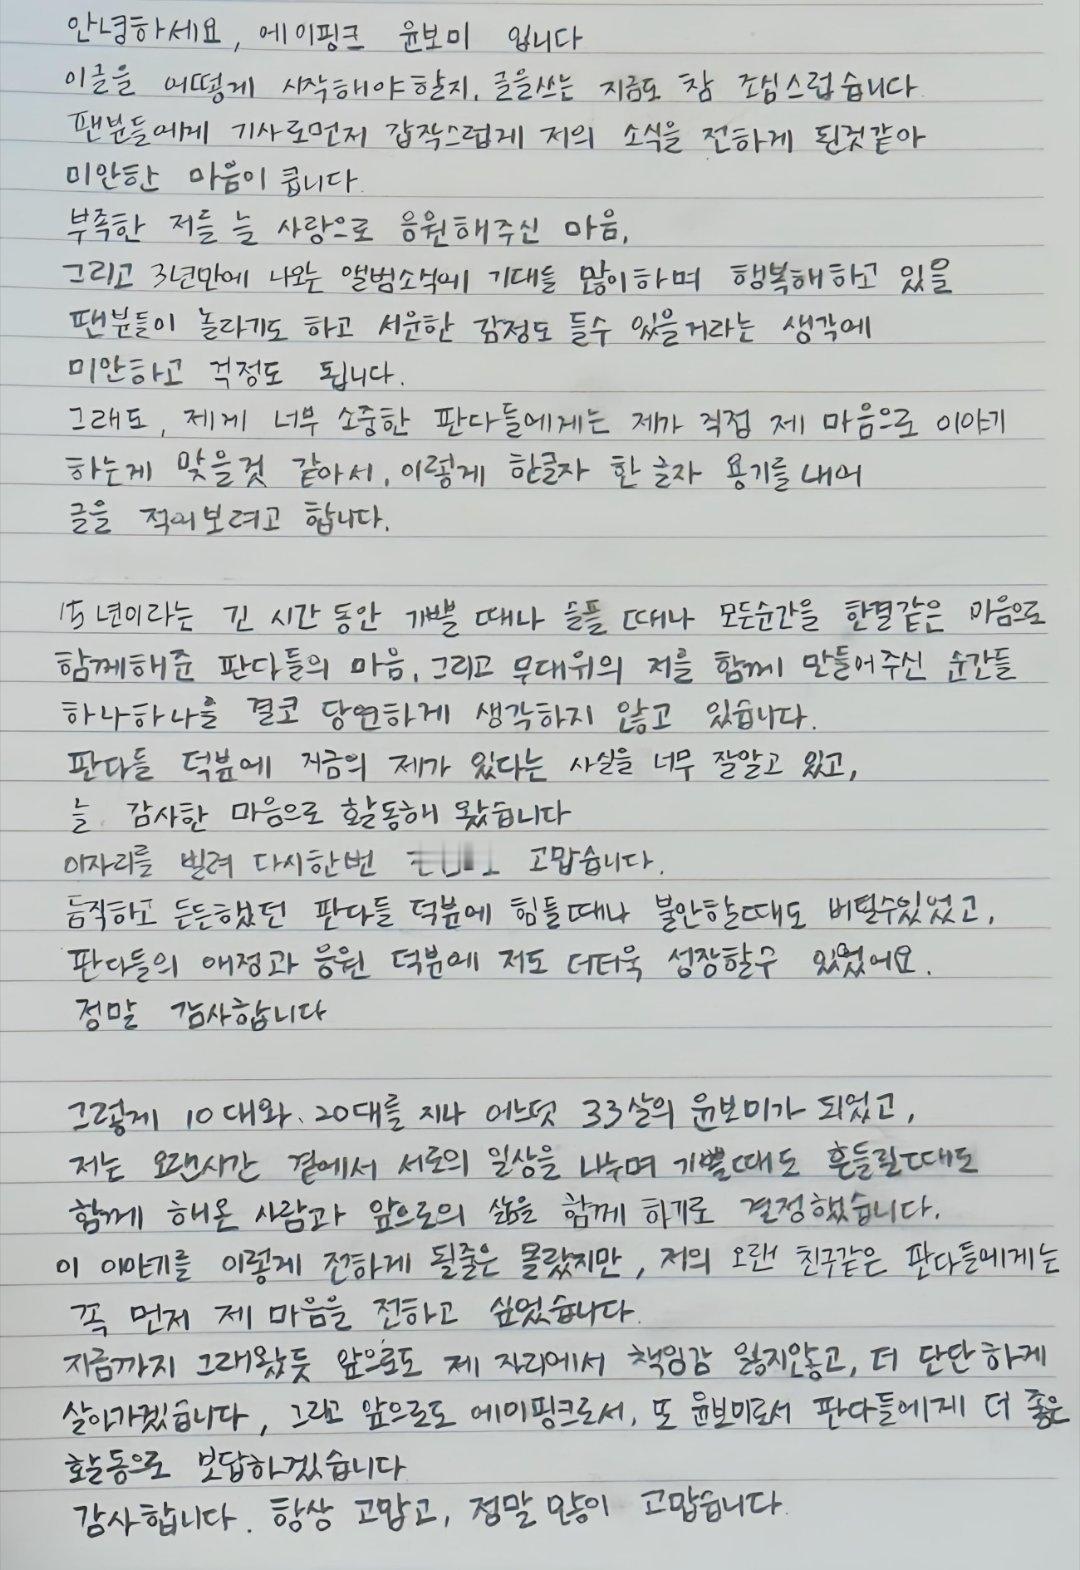 안녕하세요, 에이핑크 윤보미 입니다
이글을 어떻게 시작해야할지, 글을쓰는 지금도 참 조심스럽습니다.
팬분들에게 기사로먼저 갑작스럽게 저의 소식을 전하게 된것같아
미안한 마음이 큽니다.
부족한 저를 늘 사랑으로 응원해주신 마음,
그리고 3년만에 나오는 앨범소식에 기대를 많이하며 행복해하고 있을
팬분들이 놀라기도 하고 서운한 감정도 들수 있을거라는 생각에
미안하고 걱정도 됩니다.
그래도, 제게 너무 소중한 판다들에게는 제가 직접 제 마음으로 이야기
하는게 맞을것 같아서, 이렇게 한글자 한 글자 용기를 내어
글을 적어보려고 합니다.
15년이라는 긴 시간 동안 기쁠 때나 슬플 때나 모든순간을 한결같은 마음으로
함께해준 판다들의 마음, 그리고 무대위의 저를 함께 만들어 주신 순간들
하나하나를 결코 당연하게 생각하지 않고 있습니다.
판다들 덕분에 지금의 제가 있다는 사실을 너무 잘알고 있고,
늘 감사한 마음으로 활동해 왔습니다
이자리를 빌려 다시한번 고맙습니다.
듬직하고 든든했던 판다들 덕분에 힘들때나 불안할때도 버틸수있었고,
판다들의 애정과 응원 덕분에 저도 더더욱 성장할수 있었어요.
정말 감사합니다
그렇게 10대와, 20대를 지나 어느덧 33살의 윤보미가 되었고,
저는 오랜시간 곁에서 서로의 일상을 나누며 기쁠때도 흔들릴때도
함께 해온 사람과 앞으로의 삶을 함께 하기로 결정했습니다.
이 이야기를 이렇게 전하게 될줄은 몰랐지만, 저의 오랜 친구같은 판다들에게는
꼭 먼저 제 마음을 전하고 싶었습니다.
지금까지 그래왔듯 앞으로도 제 자리에서 책임감 잃지않고, 더 단단하게
살아가겠습니다, 그리고 앞으로도 에이핑크로서, 또 윤보미로서 판다들에게 더 좋은
활동으로 보답하겠습니다
감사합니다. 항상 고맙고, 정말 많이 고맙습니다.